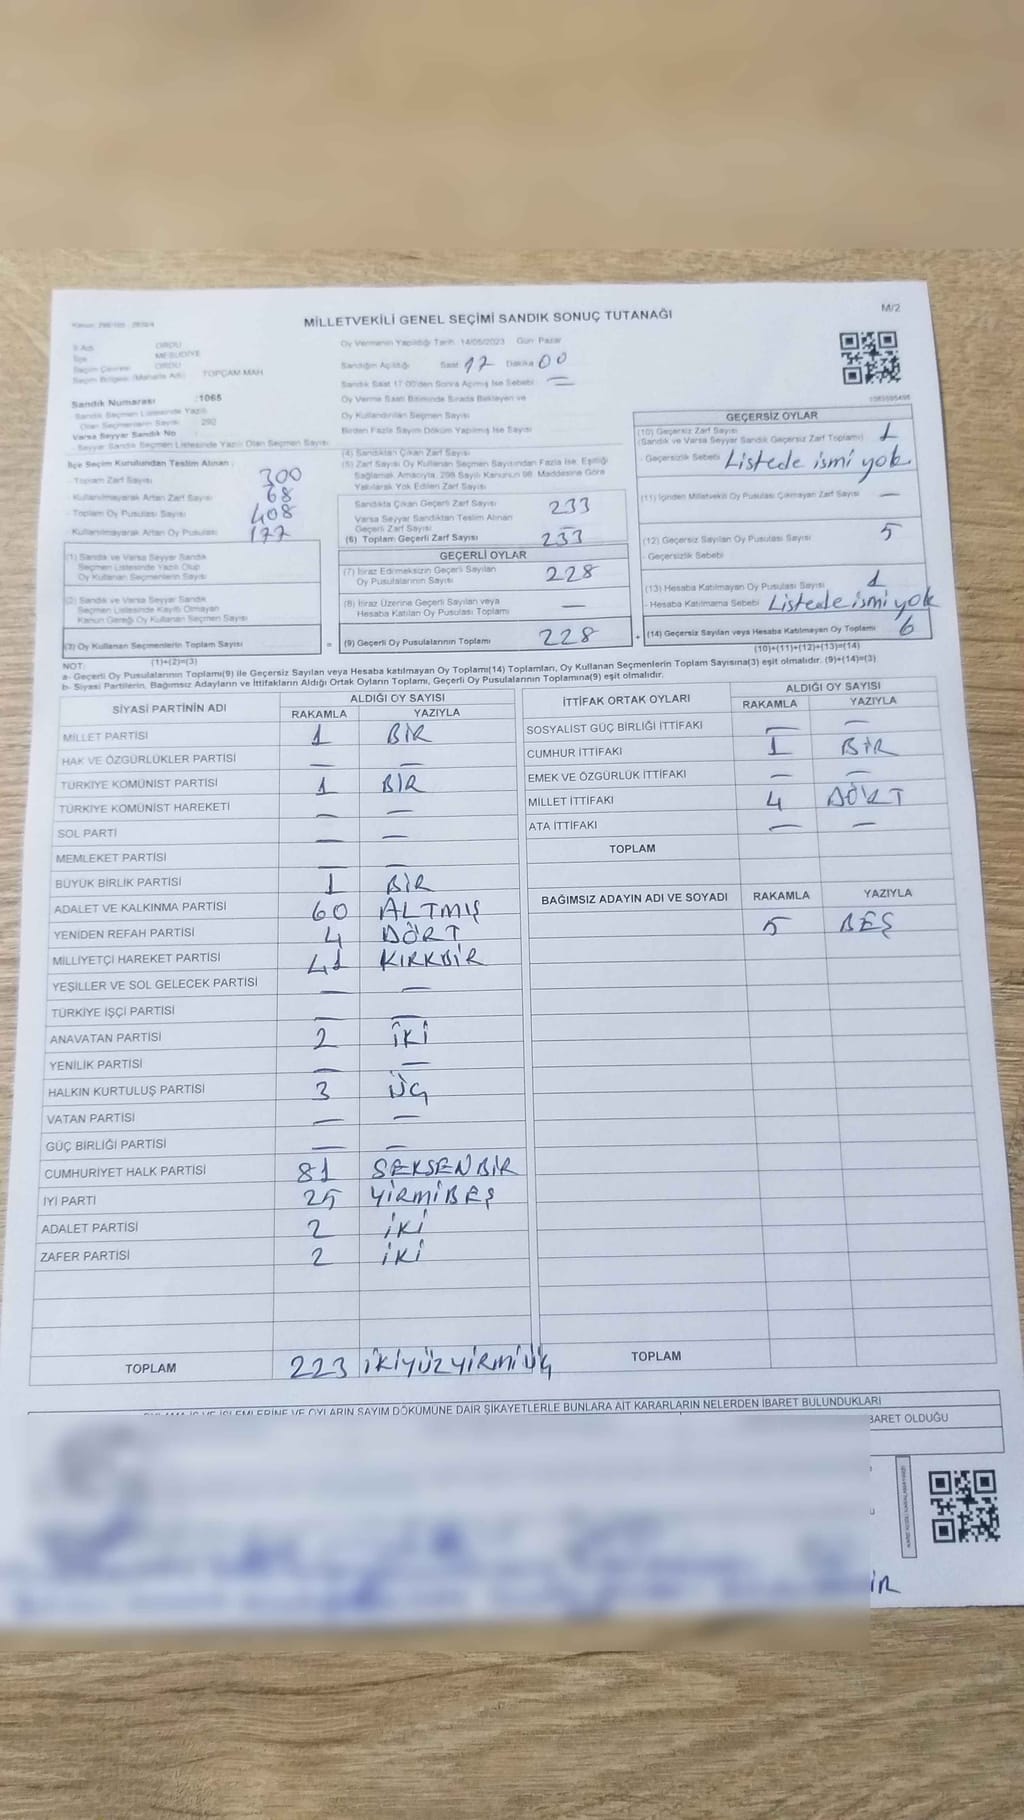 M/2
MİLLETVEKİLİ GENEL SEÇİMİ SANDIK SONUÇ TUTANAĞI
İl Adı ORDU
İlçe MESUDİYE
Seçim Çevresi ORDU
Seçim Bölgesi (Mahalle Adı) TOPÇAM MAH
Sandık Numarası :1065
Sandık Seçmen Listesinde Yazılı
Olan Seçmenlerin Sayısı 292
Varsa Seyyar Sandık No
Seyyar Sandık Seçmen Listesinde Yazılı Olan Seçmen Sayısı
İlçe Seçim Kurulundan Teslim Alınan :
- Toplam Zarf Sayısı 300
- Kullanılmayarak Artan Zarf Sayısı 68
- Toplam Oy Pusulası Sayısı 408
- Kullanılmayarak Artan Oy Pusulası 177
(1) Sandık ve Varsa Seyyar Sandık
Seçmen Listesinde Yazılı Olup
Oy Kullanan Seçmenlerin Sayısı
(2) Sandık ve Varsa Seyyar Sandık
Seçmen Listesinde Kayıtlı Olmayan
Kanun Gereği Oy Kullanan Seçmen Sayısı
(3) Oy Kullanan Seçmenlerin Toplam Sayısı
(1)+(2)=(3)
Oy Vermenin Yapıldığı Tarih: 14/05/2023 Gün: Pazar
Sandığın Açıldığı Saat 17 Dakika 00
Sandık Saat 17:00'den Sonra Açılmış İse Sebebi: —
Oy Verme Saati Bitiminde Sırada Bekleyen ve
Oy Kullandırılan Seçmen Sayısı
Birden Fazla Sayım Döküm Yapılmış İse Sayısı
(4) Sandıktan Çıkan Zarf Sayısı
(5) Zarf Sayısı Oy Kullanan Seçmen Sayısından Fazla İse, Eşitliği
Sağlamak Amacıyla, 298 Sayılı Kanunun 98. Maddesine Göre
Yakılarak Yok Edilen Zarf Sayısı
Sandıkta Çıkan Geçerli Zarf Sayısı 233
Varsa Seyyar Sandıktan Teslim Alınan
Geçerli Zarf Sayısı —
(6) Toplam Geçerli Zarf Sayısı 233
GEÇERLİ OYLAR
(7) İtiraz Edilmeksizin Geçerli Sayılan
Oy Pusulalarının Sayısı 228
(8) İtiraz Üzerine Geçerli Sayılan veya
Hesaba Katılan Oy Pusulası Toplamı —
= (9) Geçerli Oy Pusulalarının Toplamı 228 +
GEÇERSİZ OYLAR
(10) Geçersiz Zarf Sayısı
(Sandık ve Varsa Seyyar Sandık Geçersiz Zarf Toplamı) 1
- Geçersizlik Sebebi Listede ismi yok
(11) İçinden Milletvekili Oy Pusulası Çıkmayan Zarf Sayısı —
(12) Geçersiz Sayılan Oy Pusulası Sayısı 5
- Geçersizlik Sebebi
(13) Hesaba Katılmayan Oy Pusulası Sayısı 1
- Hesaba Katılmama Sebebi Listede ismi yok
(14) Geçersiz Sayılan veya Hesaba Katılmayan Oy Toplamı 6
(10)+(11)+(12)+(13)=(14)
NOT:
a- Geçerli Oy Pusulalarının Toplamı(9) ile Geçersiz Sayılan veya Hesaba katılmayan Oy Toplamı(14) Toplamları, Oy Kullanan Seçmenlerin Toplam Sayısına(3) eşit olmalıdır. (9)+(14)=(3)
b- Siyasi Partilerin, Bağımsız Adayların ve İttifakların Aldığı Ortak Oyların Toplamı, Geçerli Oy Pusulalarının Toplamına(9) eşit olmalıdır.
SİYASİ PARTİNİN ADI ALDIĞI OY SAYISI
RAKAMLA YAZIYLA
MİLLET PARTİSİ 1 BİR
HAK VE ÖZGÜRLÜKLER PARTİSİ — —
TÜRKİYE KOMÜNİST PARTİSİ 1 BİR
TÜRKİYE KOMÜNİST HAREKETİ — —
SOL PARTİ — —
MEMLEKET PARTİSİ — —
BÜYÜK BİRLİK PARTİSİ 1 BİR
ADALET VE KALKINMA PARTİSİ 60 ALTMIŞ
YENİDEN REFAH PARTİSİ 4 DÖRT
MİLLİYETÇİ HAREKET PARTİSİ 41 KIRKBİR
YEŞİLLER VE SOL GELECEK PARTİSİ — —
TÜRKİYE İŞÇİ PARTİSİ — —
ANAVATAN PARTİSİ 2 İKİ
YENİLİK PARTİSİ — —
HALKIN KURTULUŞ PARTİSİ 3 ÜÇ
VATAN PARTİSİ — —
GÜÇ BİRLİĞİ PARTİSİ — —
CUMHURİYET HALK PARTİSİ 81 SEKSENBİR
İYİ PARTİ 25 YİRMİBEŞ
ADALET PARTİSİ 2 İKİ
ZAFER PARTİSİ 2 İKİ
TOPLAM 223 İKİYÜZYİRMİÜÇ
İTTİFAK ORTAK OYLARI ALDIĞI OY SAYISI
RAKAMLA YAZIYLA
SOSYALİST GÜÇ BİRLİĞİ İTTİFAKI — —
CUMHUR İTTİFAKI 1 BİR
EMEK VE ÖZGÜRLÜK İTTİFAKI — —
MİLLET İTTİFAKI 4 DÖRT
ATA İTTİFAKI — —
TOPLAM
BAĞIMSIZ ADAYIN ADI VE SOYADI RAKAMLA YAZIYLA
5 BEŞ
TOPLAM
İŞLEMLERİNE VE OYLARIN SAYIM DÖKÜMÜNE DAİR ŞİKAYETLERLE BUNLARA AİT KARARLARIN NELERDEN İBARET BULUNDUKLARI
BARET OLDUĞU